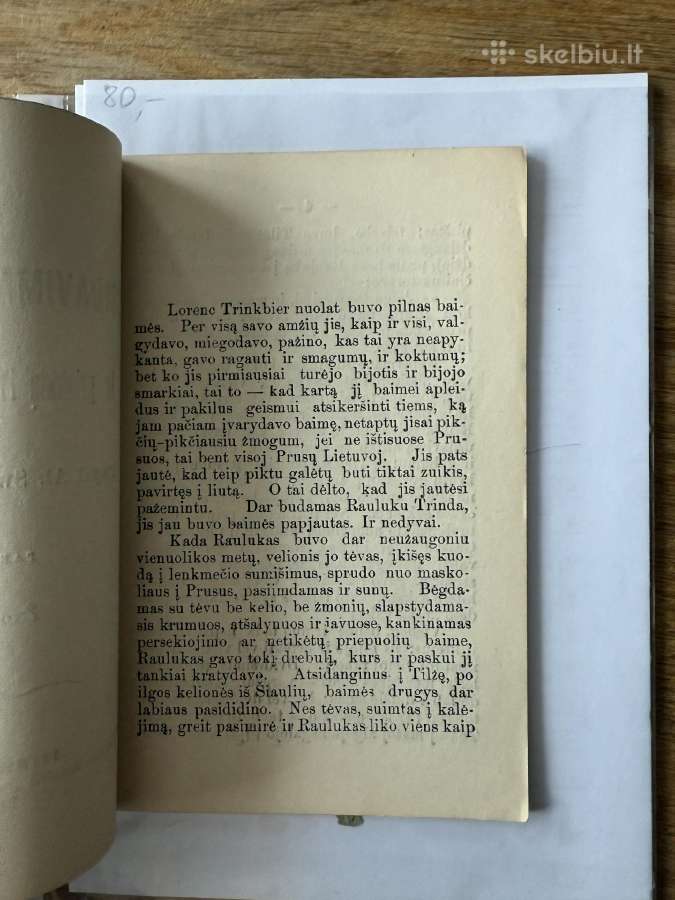 skelbiu.lt
80,-
Lorenc Trinkbier nuolat buvo pilnas bai-
mės. Per visą savo amžių jis, kaip ir visi, val-
gydavo, miegodavo, pažino, kas tai yra neapy-
kanta, gavo ragauti ir smagumų, ir koktumų;
bet ko jis pirmiausiai turėjo bijotis ir bijojo
smarkiai, tai to — kad kartą jį baimei aplei-
dus ir pakilus geismui atsikeršinti tiems, ką
jam pačiam įvarydavo baimę, netaptų jisai pik-
čių-pikčiausiu žmogum, jei ne ištisuose Pru-
suos, tai bent visoj Prusų Lietuvoj. Jis pats
jautė, kad teip piktu galėtų buti tiktai zuikis,
pavirtęs į liutą. O tai dėlto, kad jis jautėsi
pažemintu. Dar budamas Rauluku Trinda,
jis jau buvo baimės papjautas. Ir nedyvai.
Kada Raulukas buvo dar neužaugoniu
vienuolikos metų, velionis jo tėvas, įkišęs kuo-
dą į lenkmečio sumišimus, sprudo nuo masko-
liaus į Prusus, pasiimdamas ir sunų. Bėgda-
mas su tėvu be kelio, be žmonių, slapstydama-
sis krumuos, atšalynuos ir javuose, kankinamas
persekiojimo ar netikėtų priepuolių baime,
Raulukas gavo tokį drebulį, kurs ir paskui jį
tankiai kratydavo. Atsidanginus į Tilžę, po
ilgos kelionės iš Šiaulių, baimės drugys dar
labiaus pasididino. Nes tėvas, suimtas į kalė-
jimą, greit pasimirė ir Raulukas liko viens kaip